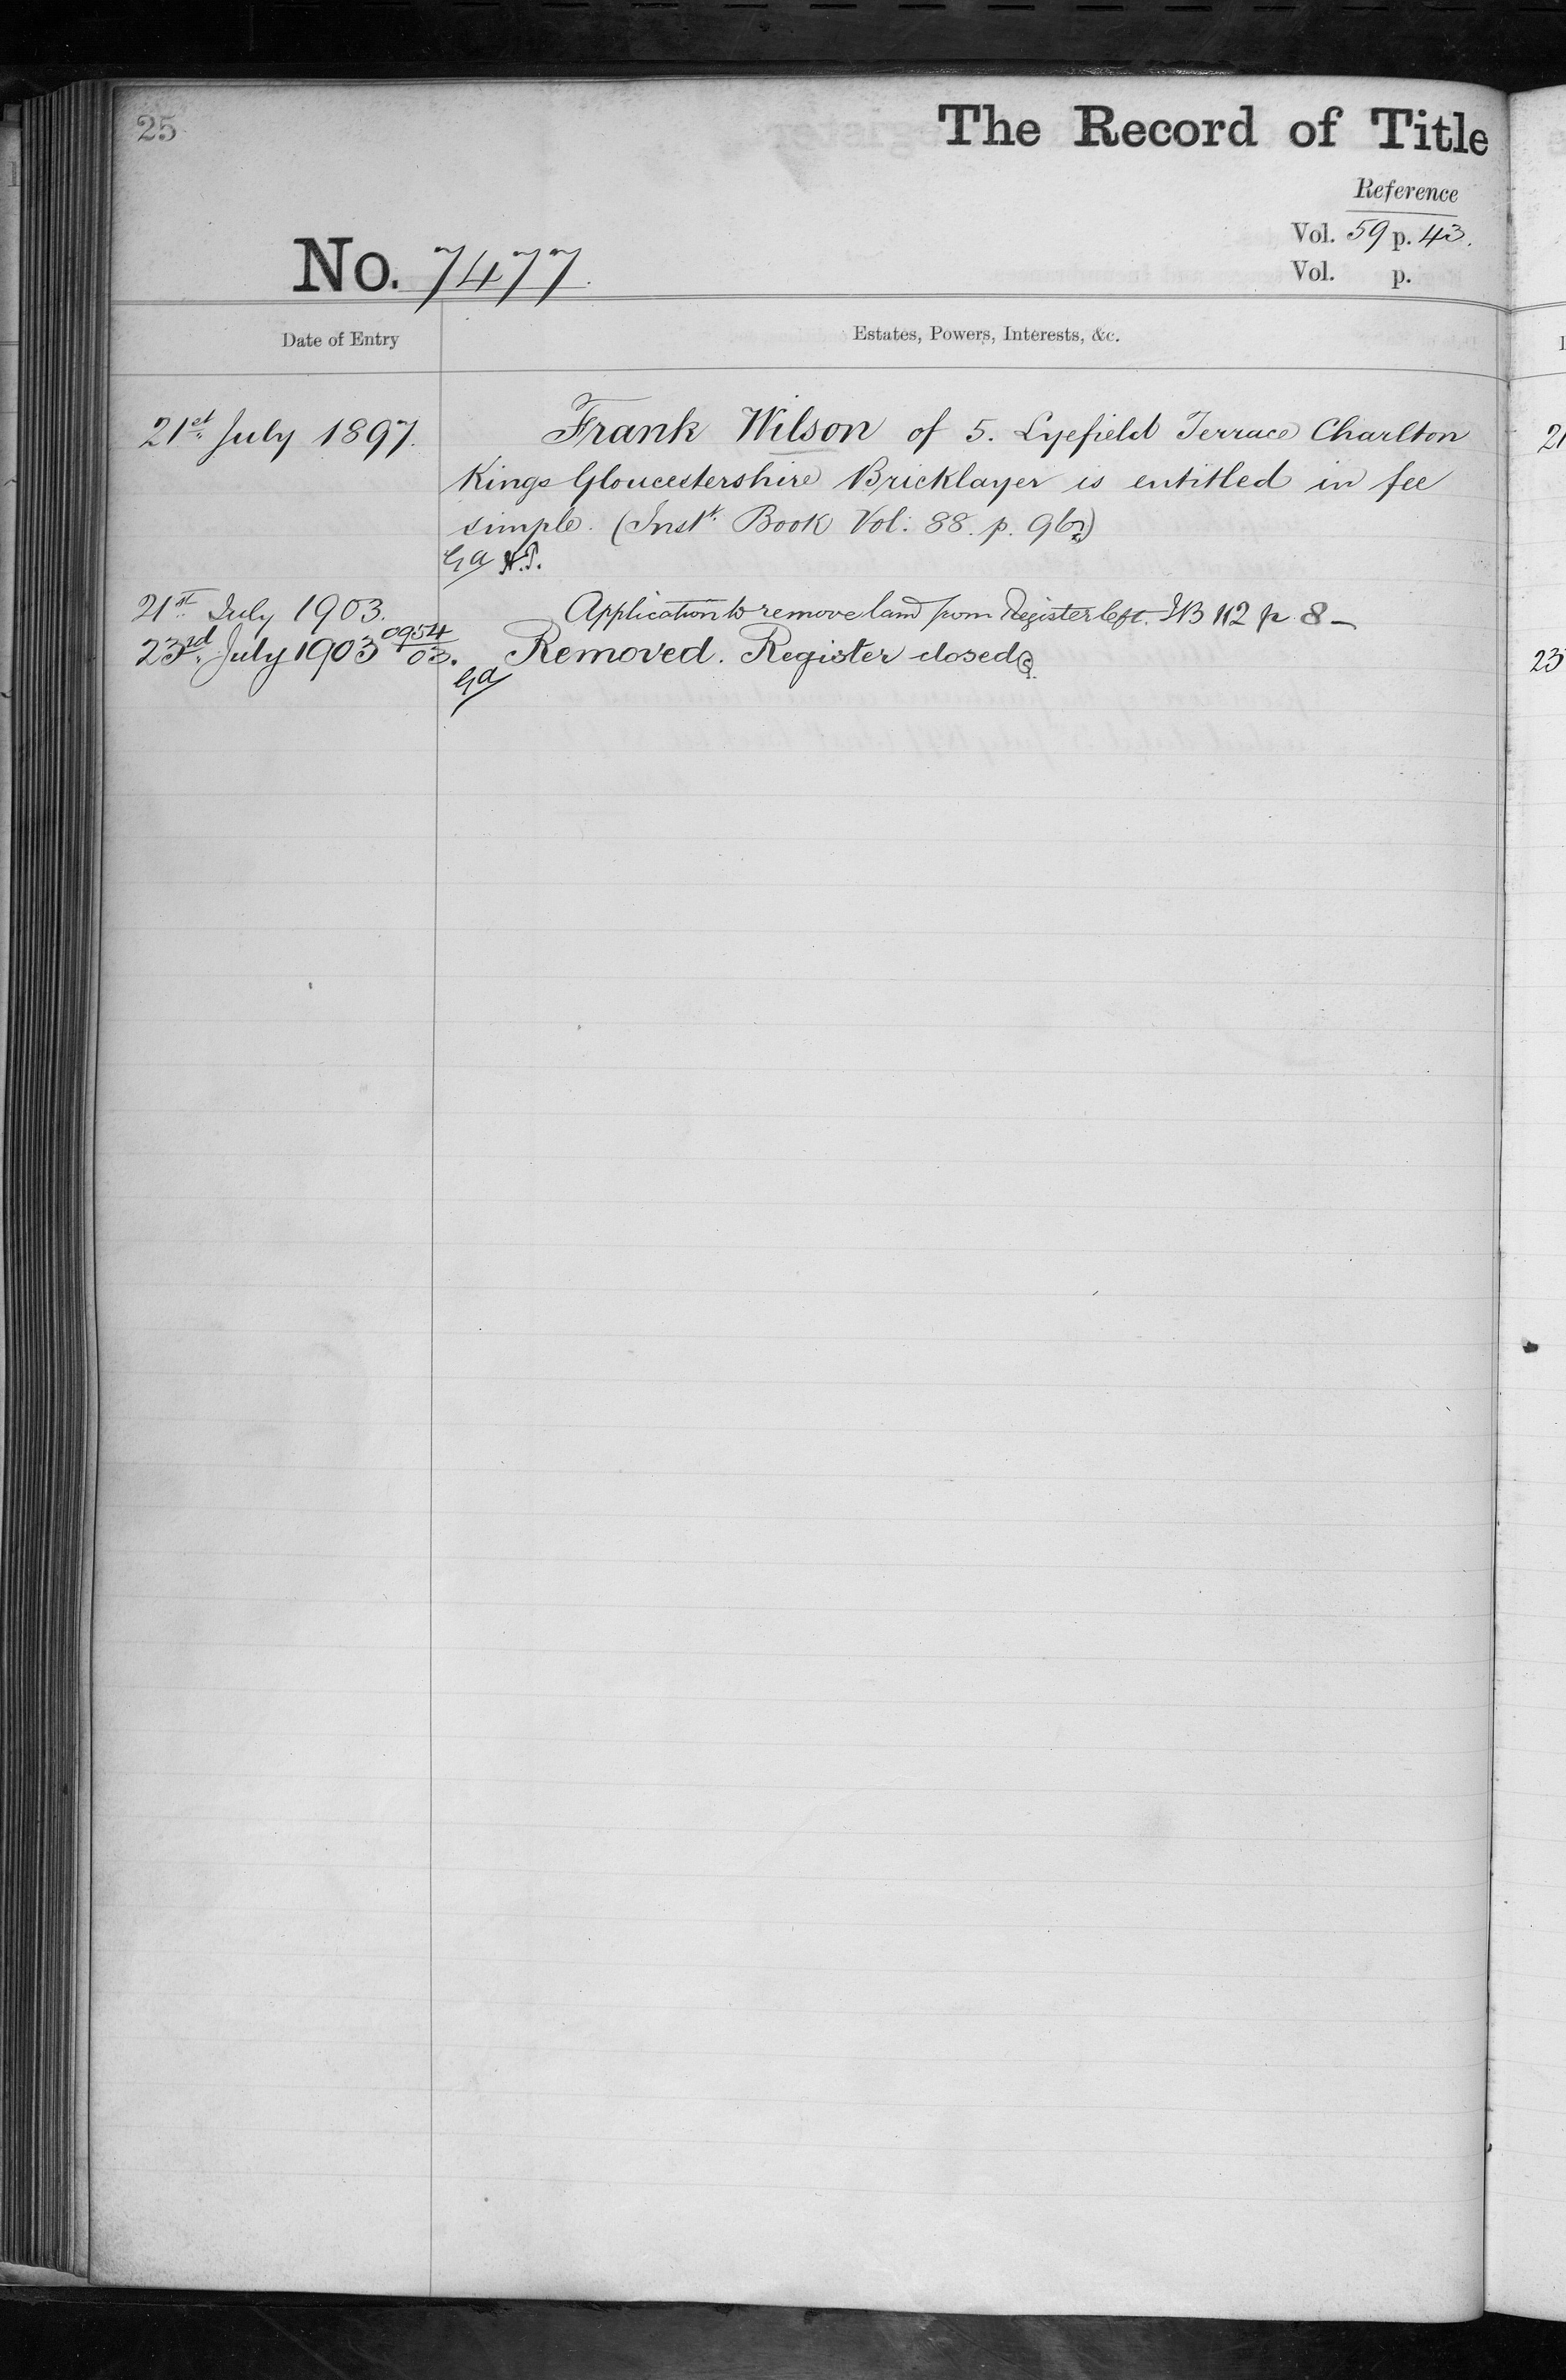 25
The Record of Title
Reference
Vol. 59 p. 43.
No. 7477.
Vol. p.
Date of Entry
Estates, Powers, Interests, &c.
21st July 1897. Frank Wilson of 5. Lyefield Terrace Charlton
Kings Gloucestershire Bricklayer is entitled in fee
simple. (Inst. Book Vol: 88. p. 96)
Ga H.T.
21st July 1903. Application to remove land from Register left. IB 112 p 8 –
23rd July 1903 0954/03. Removed. Register closed
Ga
21
23